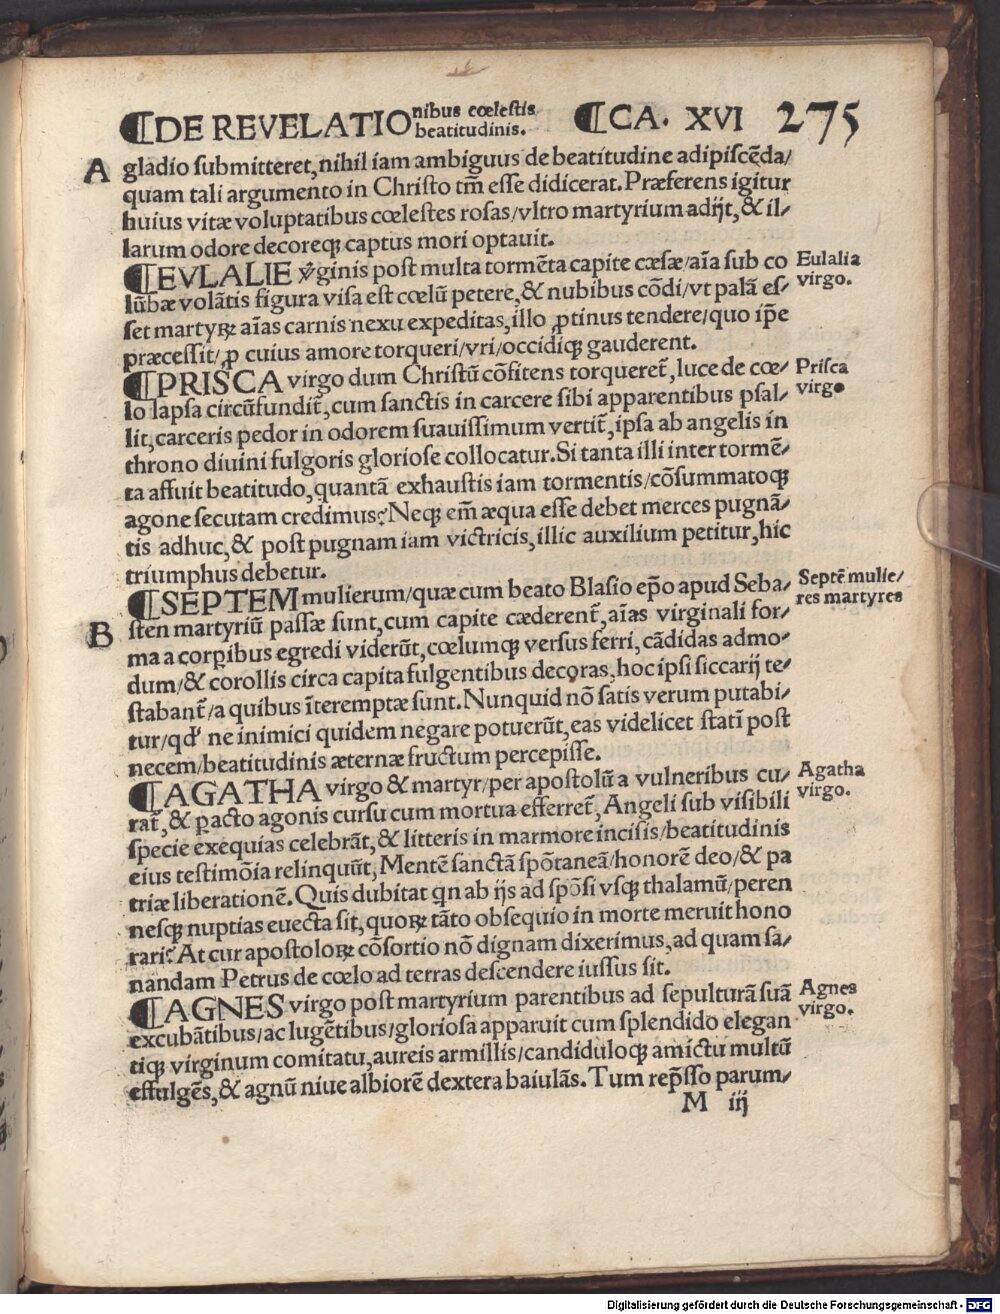 ¶DE REVELATIOnibus cœlestis beatitudinis. ¶CA. XVI 275
A gladio submitteret, nihil iam ambiguus de beatitudine adipiscẽda/
quam tali argumento in Christo tm̃ esse didicerat. Præferens igitur
huius vitæ voluptatibus cœlestes rosas/vltro martyrium adijt, & il/
larum odore decoreqꝫ captus mori optauit.
¶EVLALIE v̾ginis post multa tormẽta capite cæsæ/aĩa sub co Eulalia
lũbæ volãtis figura visa est cœlũ petere, & nubibus cõdi/vt palã es/ virgo.
set martyꝝ aĩas carnis nexu expeditas, illo ꝓtinus tendere/quo ip̃e
præcessit/ꝓ cuius amore torqueri/vri/occidiqꝫ gauderent.
¶PRISCA virgo dum Christũ cõfitens torqueret̃, luce de cœ/ Prisca
lo lapsa circũfundit̃, cum sanctis in carcere sibi apparentibus psal/ virgo
lit, carceris pedor in odorem suauissimum vertit̃, ipsa ab angelis in
throno diuini fulgoris gloriose collocatur. Si tanta illi inter tormẽ/
ta affuit beatitudo, quantã exhaustis iam tormentis/cõsummatoqꝫ
agone secutam credimus? Neqꝫ em̃ æqua esse debet merces pugnã/
tis adhuc, & post pugnam iam victricis, illic auxilium petitur, hic
triumphus debetur.
¶SEPTEM mulierum/quæ cum beato Blasio ep̃o apud Seba/ Septẽ mulie/
B sten martyriũ passæ sunt, cum capite cæderent̃, aĩas virginali for/ res martyres
ma a corꝑibus egredi viderũt, cœlumqꝫ versus ferri, cãdidas admo/
dum/& corollis circa capita fulgentibus decoras, hoc ipsi siccarij te/
stabant̃/a quibus ĩteremptæ sunt. Nunquid nõ satis verum putabi/
tur/qd' ne inimici quidem negare potuerũt, eas videlicet statĩ post
necem/beatitudinis æternæ fructum percepisse.
¶AGATHA virgo & martyr/per apostolũ a vulneribus cu/ Agatha
rat̃, & ꝑacto agonis cursu cum mortua efferret̃, Angeli sub visibili virgo.
specie exequias celebrãt, & litteris in marmore incisis/beatitudinis
eius testimõia relinquũt, Mentẽ sanctã spõtaneã/honorẽ deo/& pa
triæ liberationẽ. Quis dubitat qn ab ijs ad spõsi vsqꝫ thalamũ/peren
nesqꝫ nuptias euecta sit, quoꝝ tãto obsequio in morte meruit hono
rari? At cur apostoloꝝ cõsortio nõ dignam dixerimus, ad quam sa/
nandam Petrus de cœlo ad terras descendere iussus sit.
¶AGNES virgo post martyrium parentibus ad sepulturã suã Agnes
excubãtibus/ac lugẽtibus/gloriosa apparuit cum splendido elegan virgo.
tiqꝫ virginum comitatu, aureis armillis/candiduloqꝫ amictu multũ
effulgẽs, & agnũ niue albiorẽ dextera baiulãs. Tum rep̃sso parum/
M iij
Digitalisierung gefördert durch die Deutsche Forschungsgemeinschaft - DFG